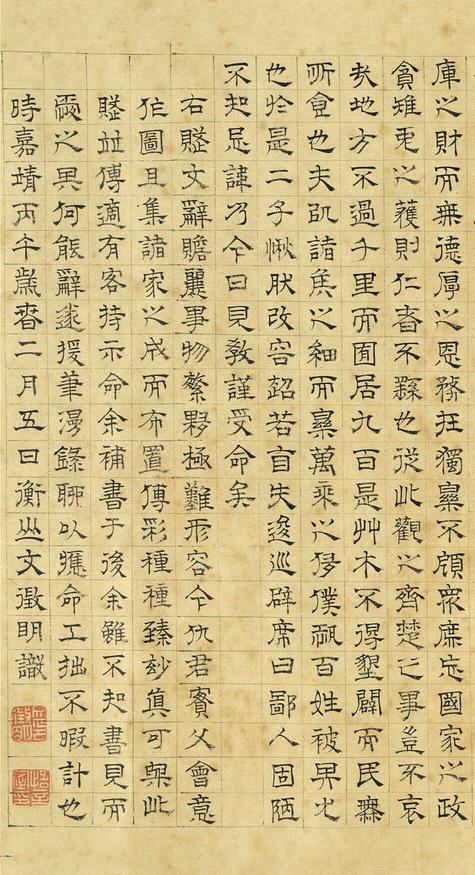 庫之財而無德厚之恩務在獨樂不顧衆庶忘國家之政
貪雉兔之獲則仁者不繇也從此觀之齊楚之事豈不哀
哉地方不過千里而囿居九百是艸木不得墾闢而民無
所食也夫以諸侯之細而樂萬乘之侈僕恐百姓被其尤
也於是二子愀肰改容超若自失逡巡辟席曰鄙人固陋
不知忌諱乃今日見教謹受命矣
右賦文辭贍麗事物繁夥極難形容今仇君實父會意
作圖且集諸家之成而布置傅彩種種臻玅真可與此
賦並傳適有客持示命余補書于後余雖不知書見而
兩之異何能辭遂援筆漫錄聊以應命工拙不暇計也
時嘉靖丙午歲春二月五日衡山文徵明識